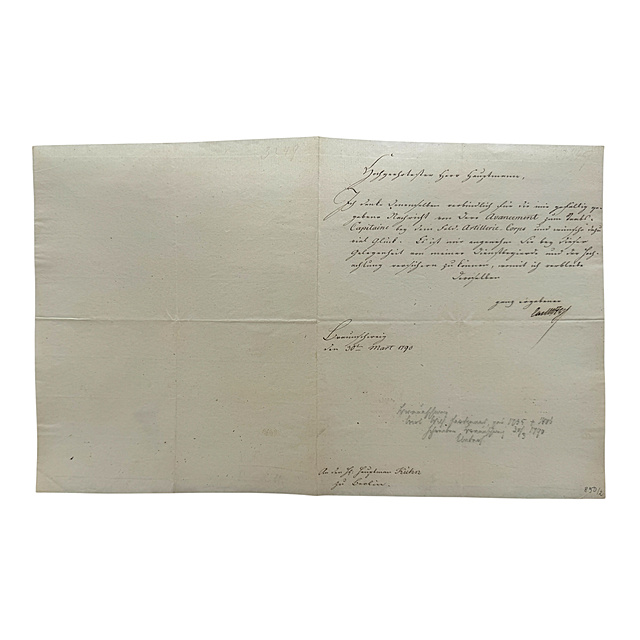 Hochgeehrtester Herr Hauptmann,
Ich danke denenselben verbindlich für die mir gefällig ge-
gebene Nachricht von Dero Avancement zum
Capitaine bey dem Feld-Artillerie-Corps und wünsche dazu
viel Glück. Es ist mir angenehm Sie bey dieser
Gelegenheit von meiner Dienstbegierde und der Hoch-
achtung versichern zu können, womit ich verbleibe
Denenselben
ganz ergebener
Braunschweig
den 30ten Mart 1790
Braunschweig
Carl Wilh. Ferdinand, 1735 1806
Schreiben Braunschweig 1790
An den H. Hauptman Kühn
zu Berlin.